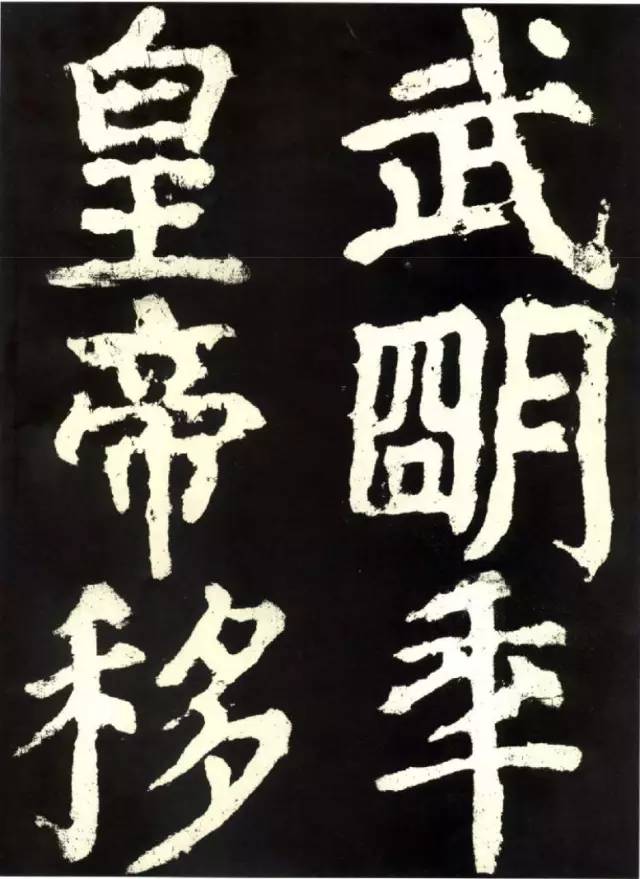 武明年
皇帝移